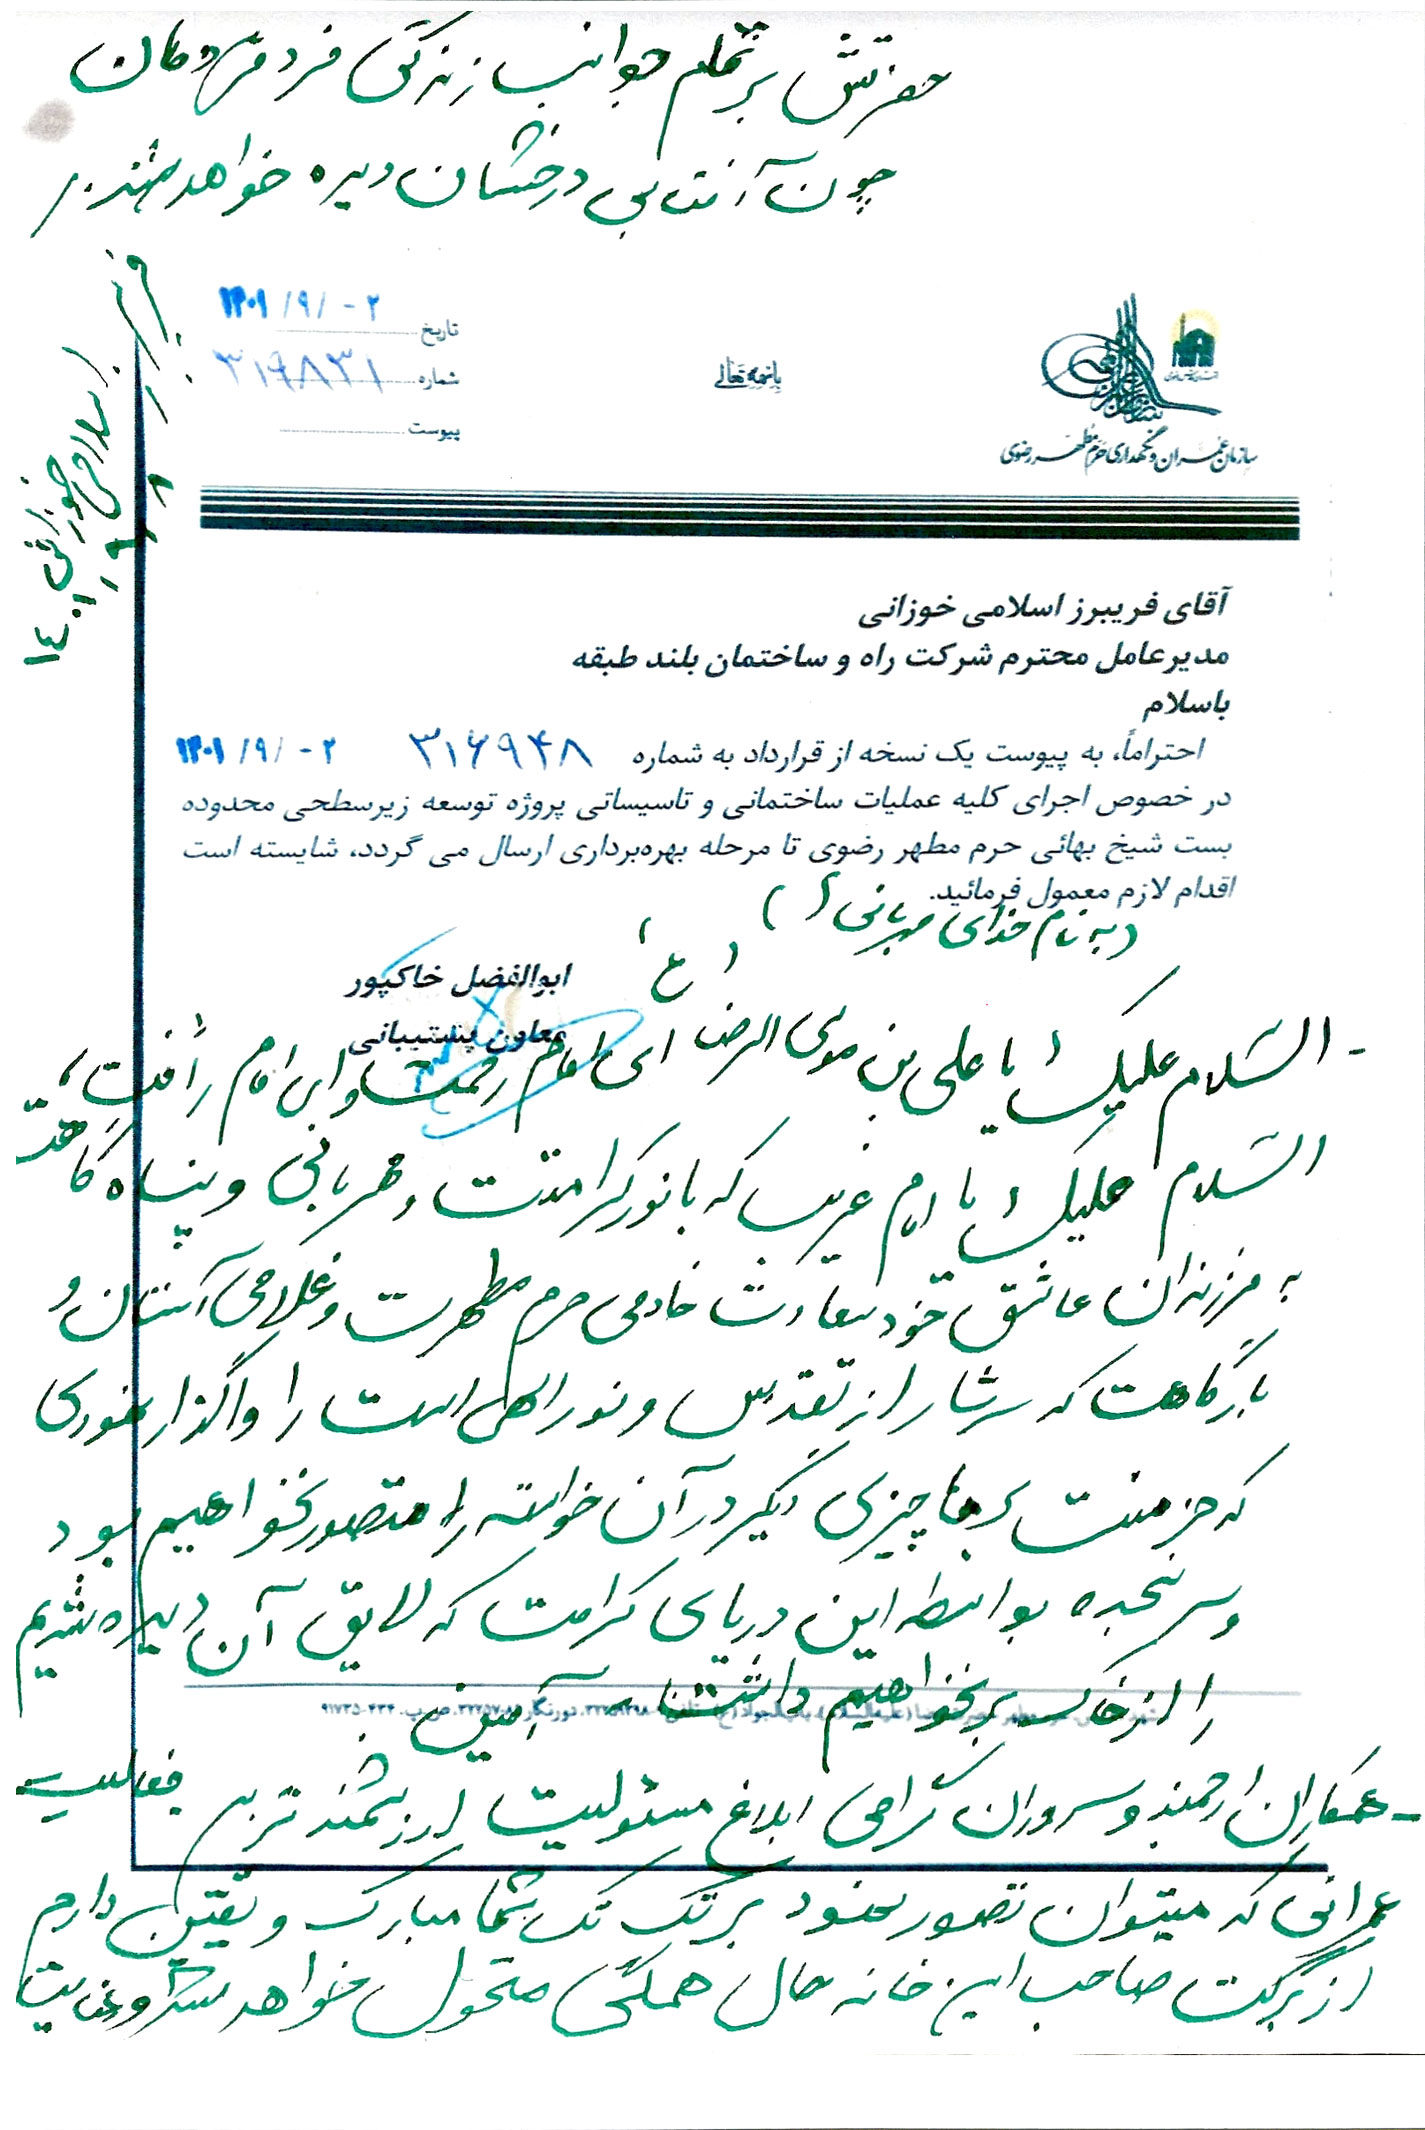 حضرتش بر تمام جوانب زندگی فرد فردمان
چون آفتابی درخشان دیده خواهد شد.
فریبرز اسلامی خوزانی
۱۴۰۱/۹/۸
تاریخ ۱۴۰۱/۹/۰۲
شماره ۳۱۹۸۳۱
پیوست
باسمه تعالی
سازمان عمران و نگهداری حرم مطهر رضوی
آقای فریبرز اسلامی خوزانی
مدیرعامل محترم شرکت راه و ساختمان بلند طبقه
باسلام
احتراماً، به پیوست یک نسخه از قرارداد به شماره ۳۱۶۹۴۸ ۱۴۰۱/۹/۰۲
در خصوص اجرای کلیه عملیات ساختمانی و تاسیساتی پروژه توسعه زیرسطحی محدوده
بست شیخ بهائی حرم مطهر رضوی تا مرحله بهره‌برداری ارسال می گردد، شایسته است
اقدام لازم معمول فرمائید.
(به نام خدای مهربانی ها)
ابوالفضل خاکپور
معاون پشتیبانی
- السّلام علیک یا علی بن موسی الرضا (ع) ای امام رحمت و ای امام رأفت،
السّلام علیک یا امام غریب که با نور کرامتت و مهربانی و پناهگاهت
به فرزندان عاشق خود سعادت خادمی حرم مطهرت و غلامی آستان و
بارگاهت که سرشار از تقدس و نور الهی است را واگذار نمودی
که جز منت برما چیزی دیگر در آن خواسته را متصور نخواهیم بود
و سر سجده بواسطه این دریای کرامت که لایق آن دیده شدیم
را از خاک بر نخواهیم داشت آمین
- همکاران ارجمند و سروران گرامی ابلاغ مسئولیت ارزشمندترین فعالیت
عمرانی که میتوان تصور نمود بر تک تک شما مبارک و یقین دارم
از برکت صاحب این خانه حال همگی متحول خواهد شد و عنایت